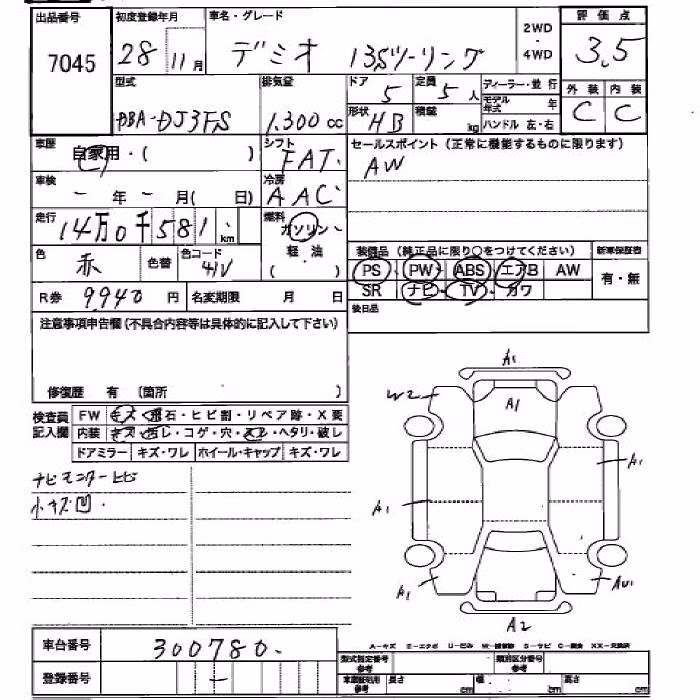 出品番号 初度登録年月 車名・グレード 2WD・4WD 評価点
7045 28 11月 デミオ 13Sツーリング 3.5
型式 排気量 ドア 定員 ディーラー・並行 外装 内装
DBA-DJ3FS 1.300cc 5 5人 モデル年式 年 C C
形状 HB 積載 kg ハンドル 左・右
車歴 自家用・( ) シフト FAT セールスポイント(正常に機能するものに限ります)
車検 - 年 - 月( 日) 冷房 AAC AW
走行 14万0千581km 燃料 ガソリン・軽油 ( )
色 赤 色替 色コード 41V 装備品(純正品に限り○をつけてください) 新車保証書
PS PW ABS エアB AW 有・無
R券 9940円 名変期限 月 日 SR ナビ・TV カワ
注意事項申告欄(不具合内容等は具体的に記入して下さい) 後日品
修復歴 有 (箇所 )
検査員記入欄 FW キズ・飛石・ヒビ割・リペア跡・X要
内装 キズ・汚レ・コゲ・穴・スレ・ヘタリ・破レ
ドアミラー キズ・ワレ ホイール・キャップ キズ・ワレ
ナビモニターヒビ
小キズ凹
A1
W2 A1
A1
A1
A1
A2
車台番号 300780
登録番号 -
A-キズ E-エクボ U-凹み W-補修跡 S-サビ C-腐食 XX-交換済
型式指定番号 参考 類別区分番号 参考
車庫証明用 参考 長さ cm 幅 cm 高さ cm